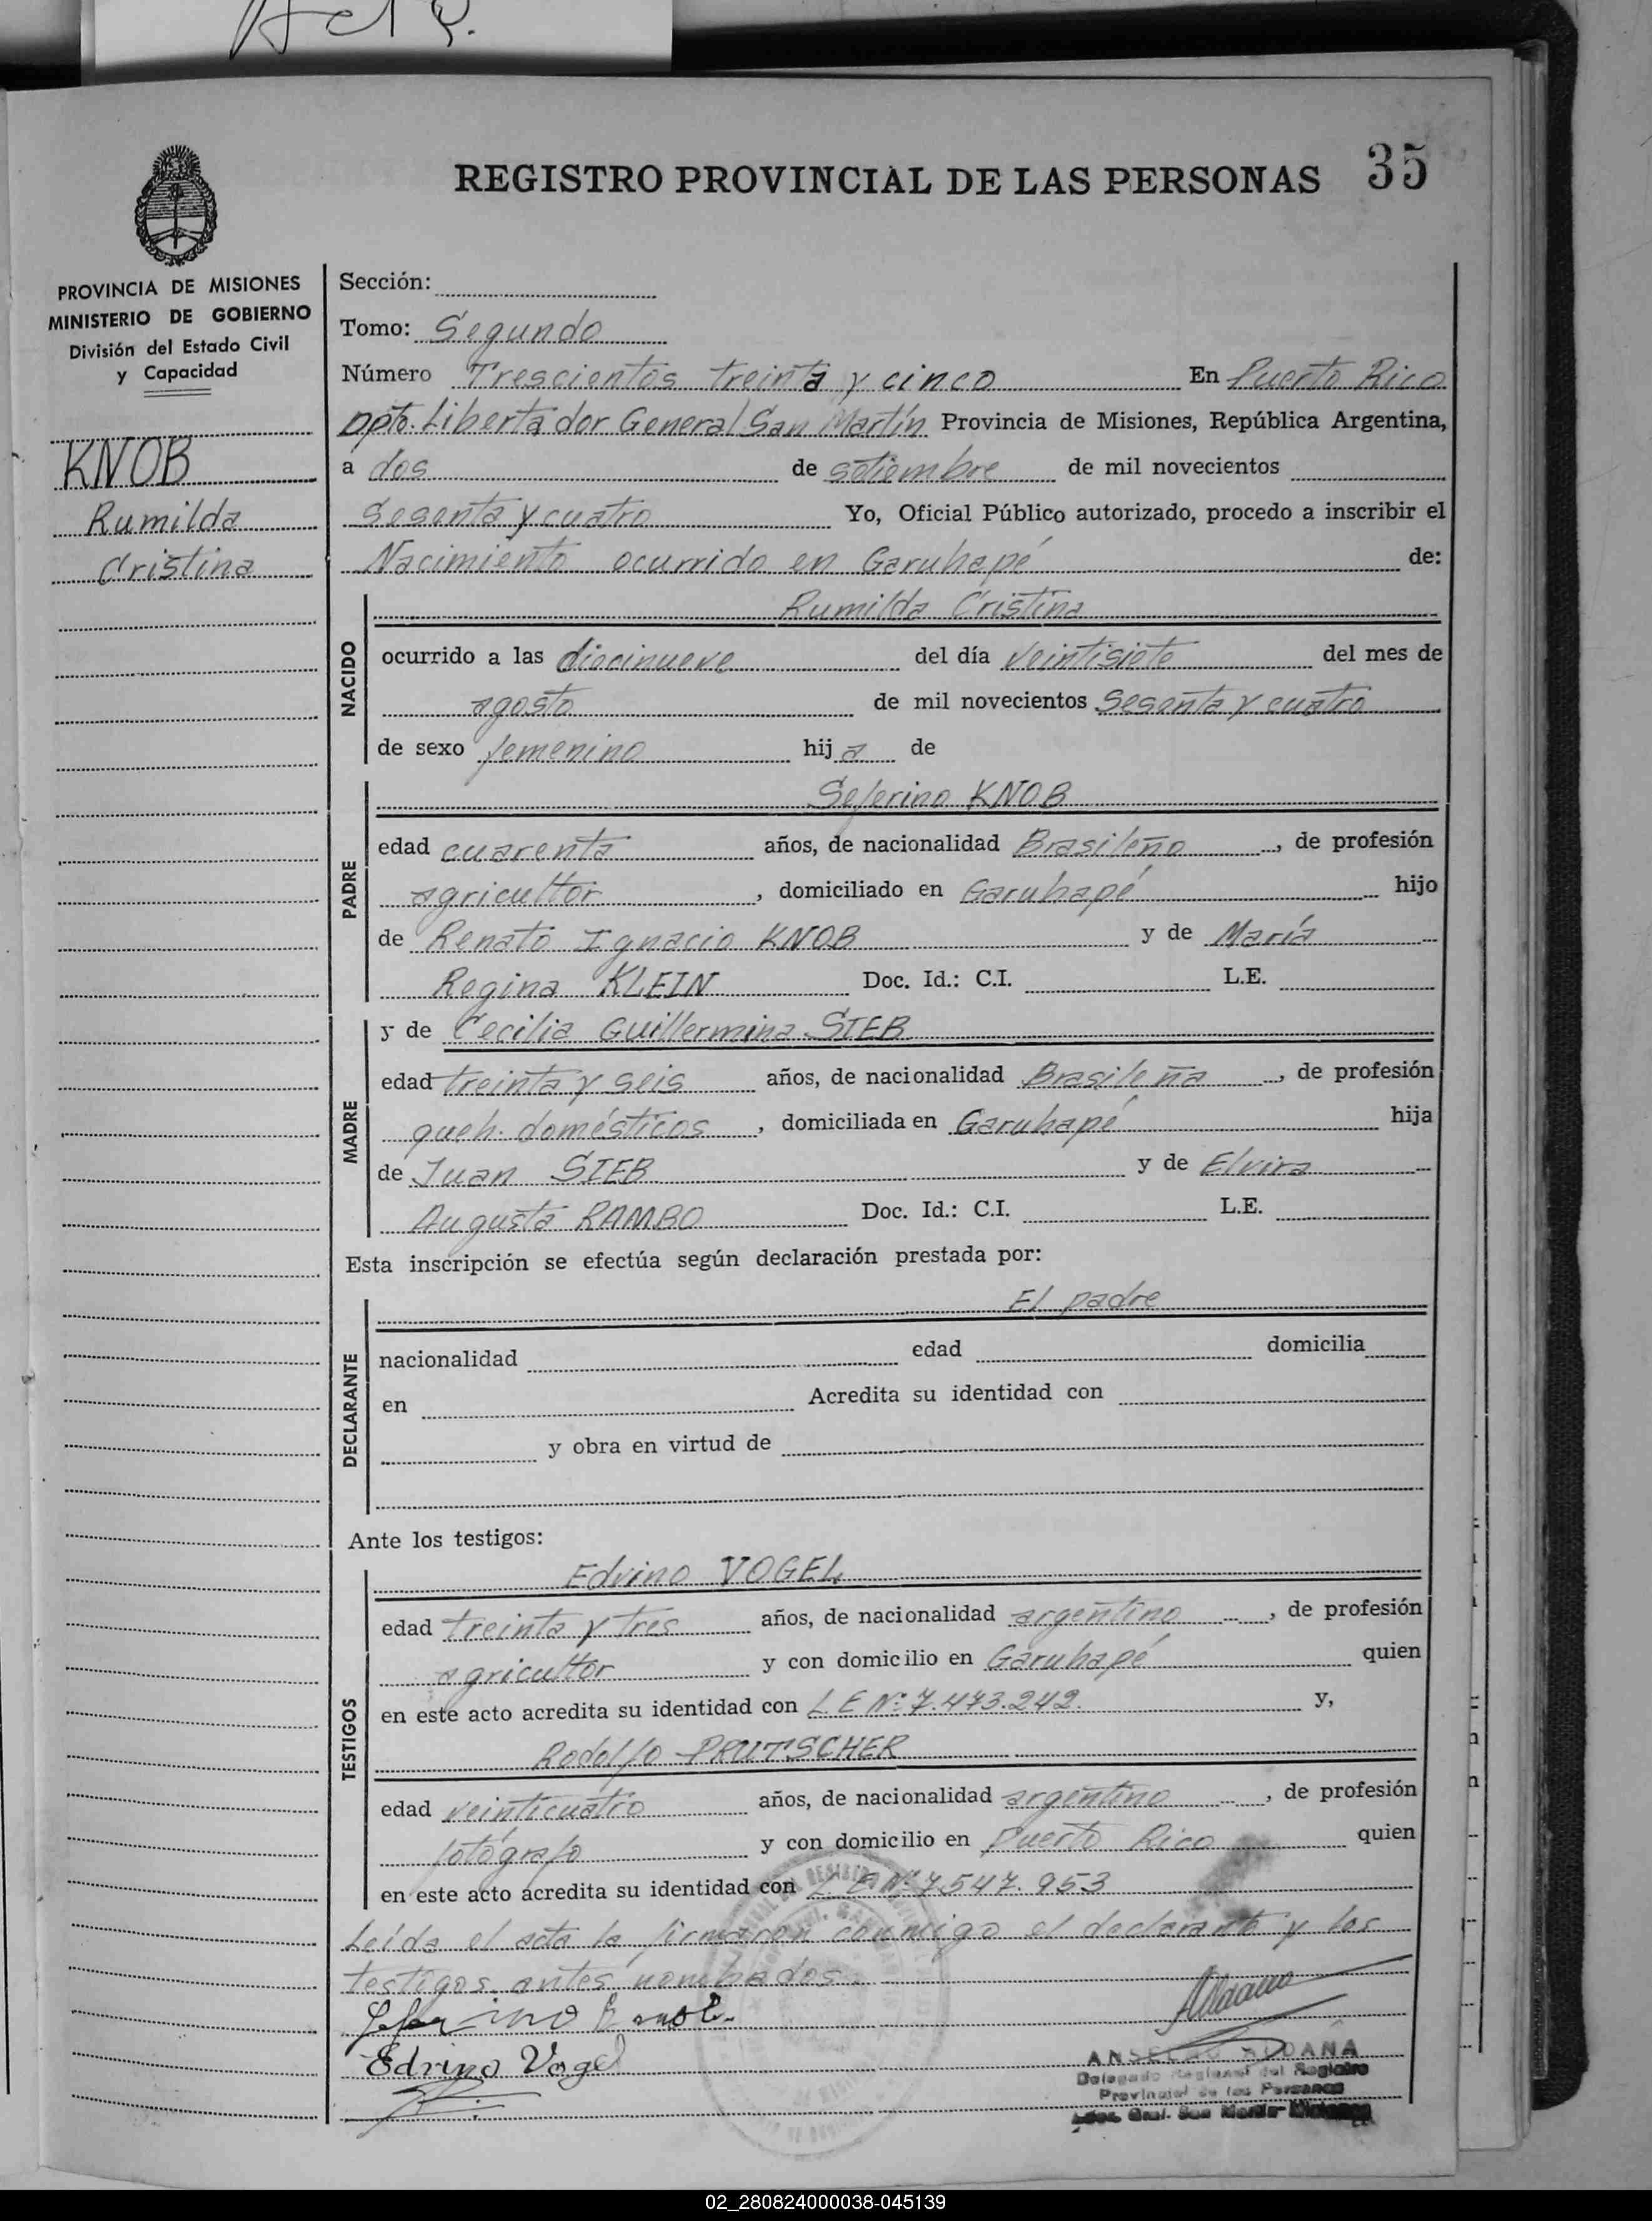 Acta.
REGISTRO PROVINCIAL DE LAS PERSONAS 35
PROVINCIA DE MISIONES
MINISTERIO DE GOBIERNO
División del Estado Civil
y Capacidad
KNOB
Rumilda
Cristina
Sección:
Tomo: Segundo
Número Trescientos treinta y cinco En Puerto Rico
Dpto. Libertador General San Martín Provincia de Misiones, República Argentina,
a dos de setiembre de mil novecientos
sesenta y cuatro Yo, Oficial Público autorizado, procedo a inscribir el
Nacimiento ocurrido en Garuhapé de:
NACIDO
Rumilda Cristina
ocurrido a las diecinueve del día veintisiete del mes de
agosto de mil novecientos sesenta y cuatro
de sexo femenino hija de
PADRE
Seferino KNOB
edad cuarenta años, de nacionalidad Brasileño, de profesión
agricultor, domiciliado en Garuhapé hijo
de Renato Ignacio KNOB y de María
Regina KLEIN Doc. Id.: C.I. L.E.
MADRE
y de Cecilia Guillermina SIEB
edad treinta y seis años, de nacionalidad Brasileña, de profesión
queh. domésticos, domiciliada en Garuhapé hija
de Juan SIEB y de Elvira
Augusta RAMBO Doc. Id.: C.I. L.E.
Esta inscripción se efectúa según declaración prestada por:
DECLARANTE
El padre
nacionalidad edad domicilia
en Acredita su identidad con
y obra en virtud de
Ante los testigos:
TESTIGOS
Edvino VOGEL
edad treinta y tres años, de nacionalidad argentino, de profesión
agricultor y con domicilio en Garuhapé quien
en este acto acredita su identidad con L.E Nº: 7.473.242. y,
Rodolfo PRUTSCHER
edad veinticuatro años, de nacionalidad argentino, de profesión
fotógrafo y con domicilio en Puerto Rico quien
en este acto acredita su identidad con L.E Nº 7.547.953
Leída el acta la firmaron conmigo el declarante y los
testigos antes nombrados.
Edvino Vogel
ANSELMO ALDANA
Delegado Regional del Registro
Provincial de las Personas
Gral. San Martín - Misiones
02_280824000038-045139